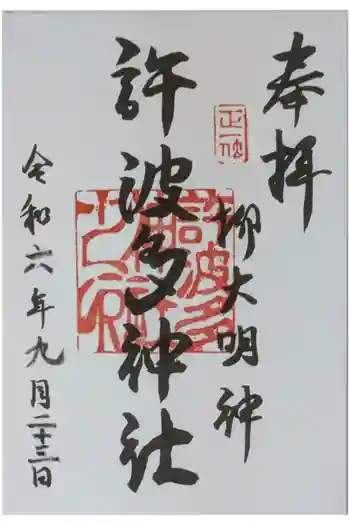 奉拝
正一位
柳大明神
許波多神社
令和六年九月二十三日